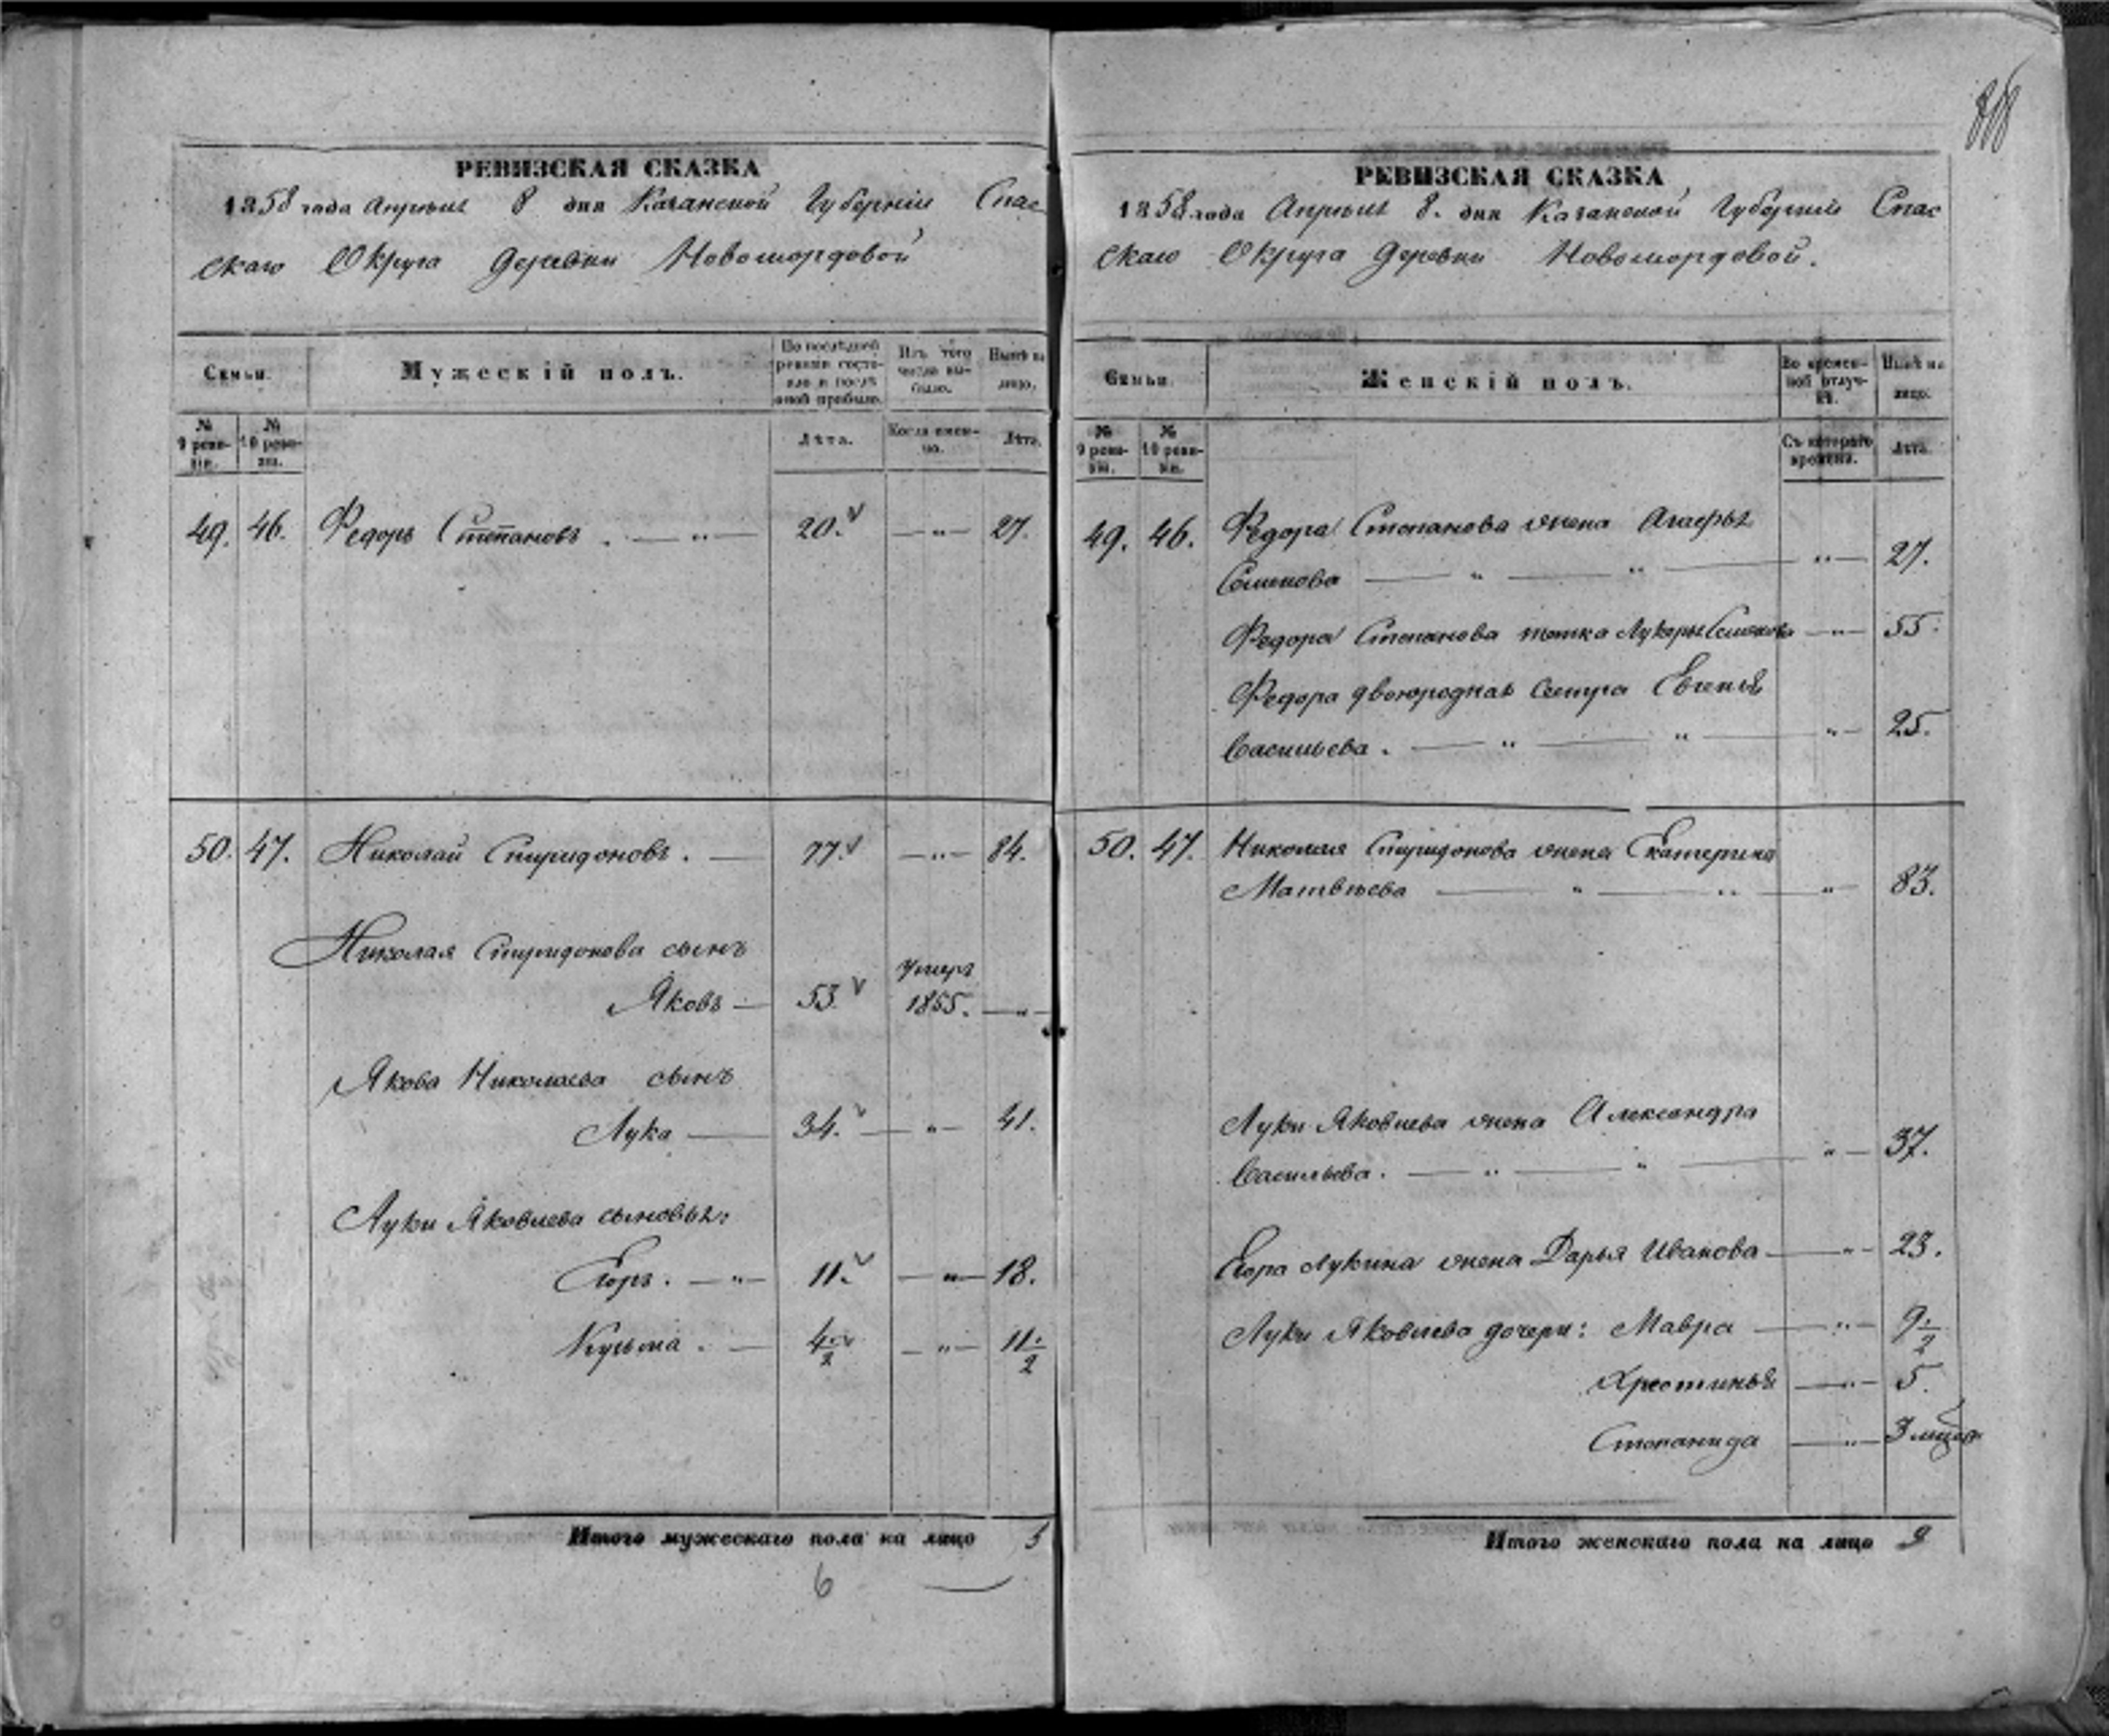 РЕВИЗСКАЯ СКАЗКА
1858 года Апрѣля 8 дня Казанской Губерніи Спас
скаго Округа деревни Новомордовой
Семьи.
Мужескій полъ.
По послѣдней ревизіи состояло и послѣ оной прибыло.
Изъ того числа выбыло.
Нынѣ на лицо.
№ 9 ревизіи.
№ 10 ревизіи.
Лѣта.
Когда именно.
Лѣта.
49. 46. Федоръ Степановъ . — „ — 20. — „ — 27.
50. 47. Николай Спиридоновъ . — 77. — „ — 84.
Николая Спиридонова сынъ
Яковъ — 53. Умеръ 1855. — „ —
Якова Николаева сынъ
Лука — 34. — „ — 41.
Луки Яковлева сыновья:
Егоръ . — „ — 11. — „ — 18.
Кузьма . — 4 1/2 — „ — 11 1/2
Итого мужескаго пола на лицо 5
6
РЕВИЗСКАЯ СКАЗКА
1858 года Апрѣля 8. дня Казанской Губерніи Спас
скаго Округа деревни Новомордовой.
Семьи.
Женскій полъ.
Во временной отлучкѣ.
Нынѣ на лицо.
№ 9 ревизіи.
№ 10 ревизіи.
Съ котораго времени.
Лѣта.
49. 46. Федора Степанова жена Агафья
Семенова — „ — „ — „ — 27.
Федора Степанова тетка Лукерья Семенова — „ — 55.
Федора двоюродная сестра Евгенья
Васильева . — „ — „ — „ — 25.
50. 47. Николая Спиридонова жена Екатерина
Матвѣева — „ — „ — „ — 83.
Луки Яковлева жена Александра
Васильева . — „ — „ — „ — 37.
Егора Лукина жена Дарья Иванова — „ — 23.
Луки Яковлева дочери: Мавра — „ — 9 1/2
Хрестинья — „ — 5.
Степанида — „ — 3 мѣсяц
Итого женскаго пола на лицо 9